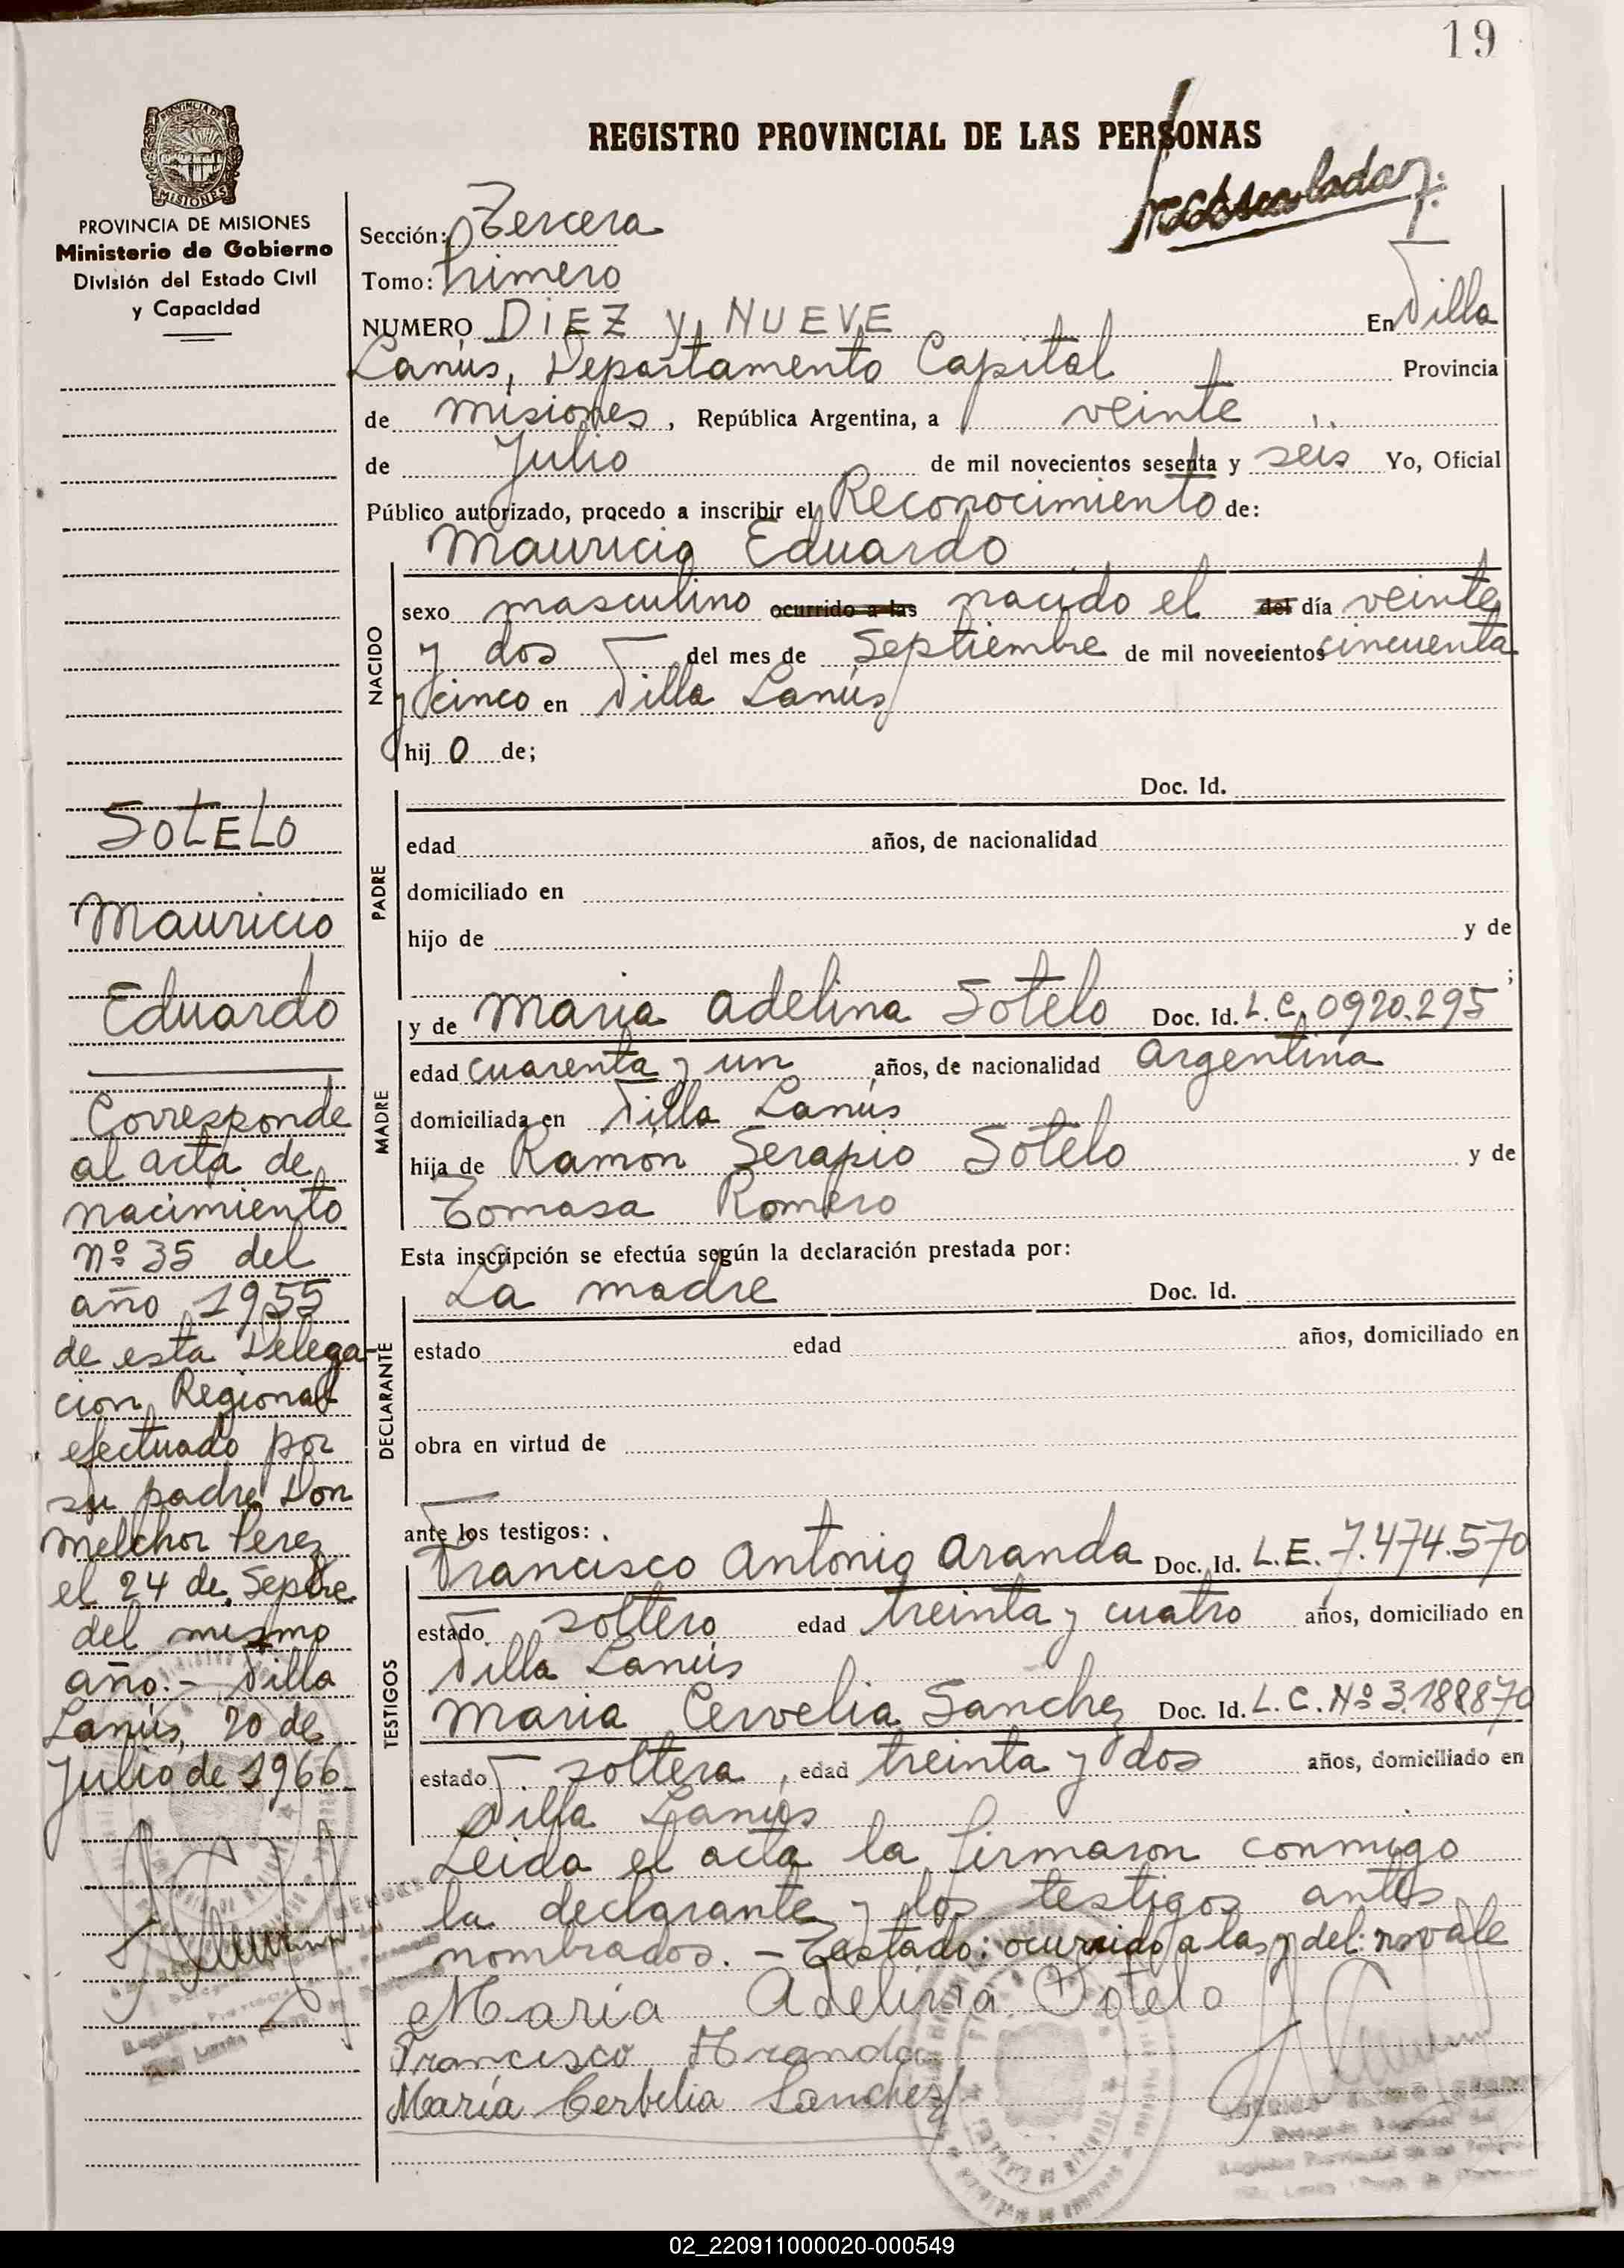 19
REGISTRO PROVINCIAL DE LAS PERSONAS
PROVINCIA DE MISIONES
Ministerio de Gobierno
División del Estado Civil
y Capacidad
SOTELO
Mauricio
Eduardo
Corresponde
al acta de
nacimiento
nº 35 del
año 1955
de esta Delega-
cion Regional
efectuado por
su padre Don
Melchor Perez
el 24 de Septbre
del mismo
año.- Villa
Lanús, 20 de
Julio de 1966
Sección: Tercera
Tomo: Primero
NUMERO DIEZ y NUEVE En Villa
Lanús, Departamento Capital Provincia
de Misiones, República Argentina, a veinte
de Julio de mil novecientos sesenta y seis Yo, Oficial
Público autorizado, procedo a inscribir el Reconocimiento de:
Mauricio Eduardo
NACIDO
sexo masculino ocurrido a las nacido el del día veinte
y dos del mes de Septiembre de mil novecientos cincuenta
y cinco en Villa Lanús
hij o de;
PADRE
Doc. Id.
edad años, de nacionalidad
domiciliado en
hijo de y de
;
MADRE
y de Maria Adelina Sotelo Doc. Id. L.C. 0920.295
edad cuarenta y un años, de nacionalidad Argentina
domiciliada en Villa Lanús
hija de Ramón Serapio Sotelo y de
Tomasa Romero
Esta inscripción se efectúa según la declaración prestada por:
DECLARANTE
La madre Doc. Id.
estado edad años, domiciliado en
obra en virtud de
ante los testigos:
TESTIGOS
Francisco Antonio Aranda Doc. Id. L.E. 7.474.570
estado soltero edad treinta y cuatro años, domiciliado en
Villa Lanús
Maria Cervelia Sanchez Doc. Id. L.C. Nº 3.188870
estado soltera, edad treinta y dos años, domiciliado en
Villa Lanús
Leida el acta la firmaron conmigo
la declarante y los testigos antes
nombrados. - Testado: ocurrido a las y del: no vale
María Adelina Sotelo
Francisco Aranda
María Cerbelia Sanchez
02_220911000020-000549